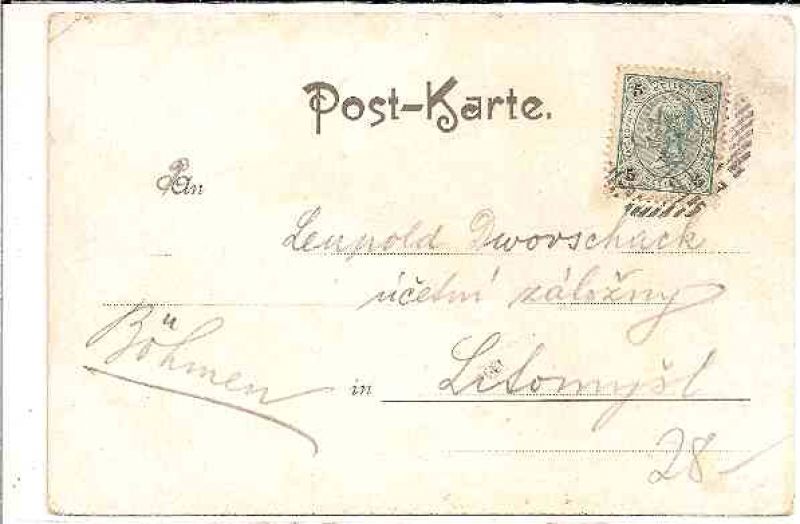 Post-Karte.
Pan
Leupold Dworschack
účetní záložny
Böhmen
in Litomyšl
28-
5 5
5 5